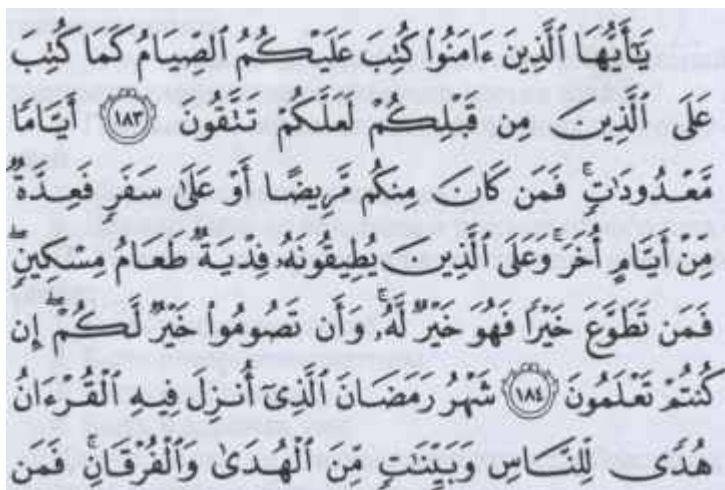 يَٰٓأَيُّهَا ٱلَّذِينَ ءَامَنُوا۟ كُتِبَ عَلَيْكُمُ ٱلصِّيَامُ كَمَا كُتِبَ
عَلَى ٱلَّذِينَ مِن قَبْلِكُمْ لَعَلَّكُمْ تَتَّقُونَ ١٨٣ أَيَّامًا
مَّعْدُودَٰتٍۚ فَمَن كَانَ مِنكُم مَّرِيضًا أَوْ عَلَىٰ سَفَرٍ فَعِدَّةٌ
مِّنْ أَيَّامٍ أُخَرَۚ وَعَلَى ٱلَّذِينَ يُطِيقُونَهُۥ فِدْيَةٌ طَعَامُ مِسْكِينٍۖ
فَمَن تَطَوَّعَ خَيْرًا فَهُوَ خَيْرٌ لَّهُۥۚ وَأَن تَصُومُوا۟ خَيْرٌ لَّكُمْۖ إِن
كُنتُمْ تَعْلَمُونَ ١٨٤ شَهْرُ رَمَضَانَ ٱلَّذِىٓ أُنزِلَ فِيهِ ٱلْقُرْءَانُ
هُدًى لِّلنَّاسِ وَبَيِّنَٰتٍ مِّنَ ٱلْهُدَىٰ وَٱلْفُرْقَانِۚ فَمَن